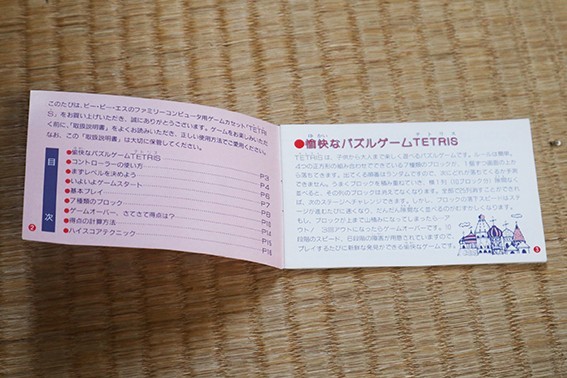 このたびは、ビー・ピー・エスのファミリーコンピュータ用ゲームカセット「TETRI
S」をお買い上げいただき、誠にありがとうございます。ゲームをお楽しみいただ
く前に、「取扱説明書」をよくお読みいただき、正しい使用方法でご使用ください。
なお、この「取扱説明書」は大切に保管してください。
目次
●愉快なパズルゲームTETRIS P3
●コントローラーの使い方 P4
●まずレベルを決めよう P5
●いよいよゲームスタート P6
●基本プレイ P7
●7種類のブロック P8
●ゲームオーバー、さてさて得点は? P13
●得点の計算方法 P14
●ハイスコアテクニック P16
2
●愉快なパズルゲームTETRIS
ゆかい
テトリス
TETRISは、子供から大人まで楽しく遊べるパズルゲームです。ルールは簡単。
4つの正方形の組み合わせでできている7種類のブロックが、1個ずつ画面の上か
ら落ちてきます。出てくる順番はランダムですので、次にどれが落ちてくるか予測
できません。うまくブロックを積み重ねていき、横1列(10ブロック分)隙間なく
並べると、その列のブロックは消えてなくなります。
は、次のステージへチャレンジできます。しかし、ブロックの落下スピードはステ
ージが進むたびに速くなり、だんだん隙間なく並べるのもむずかしくなります。
もし、ブロックが上まで山積みになってしまったら…ア
ウト! 3回アウトになったらゲームオーバーです。10
段階のスピード、6段階の障害が用意されていますので、
プレイするたびに新鮮な発見ができる愉快なゲームです。
3